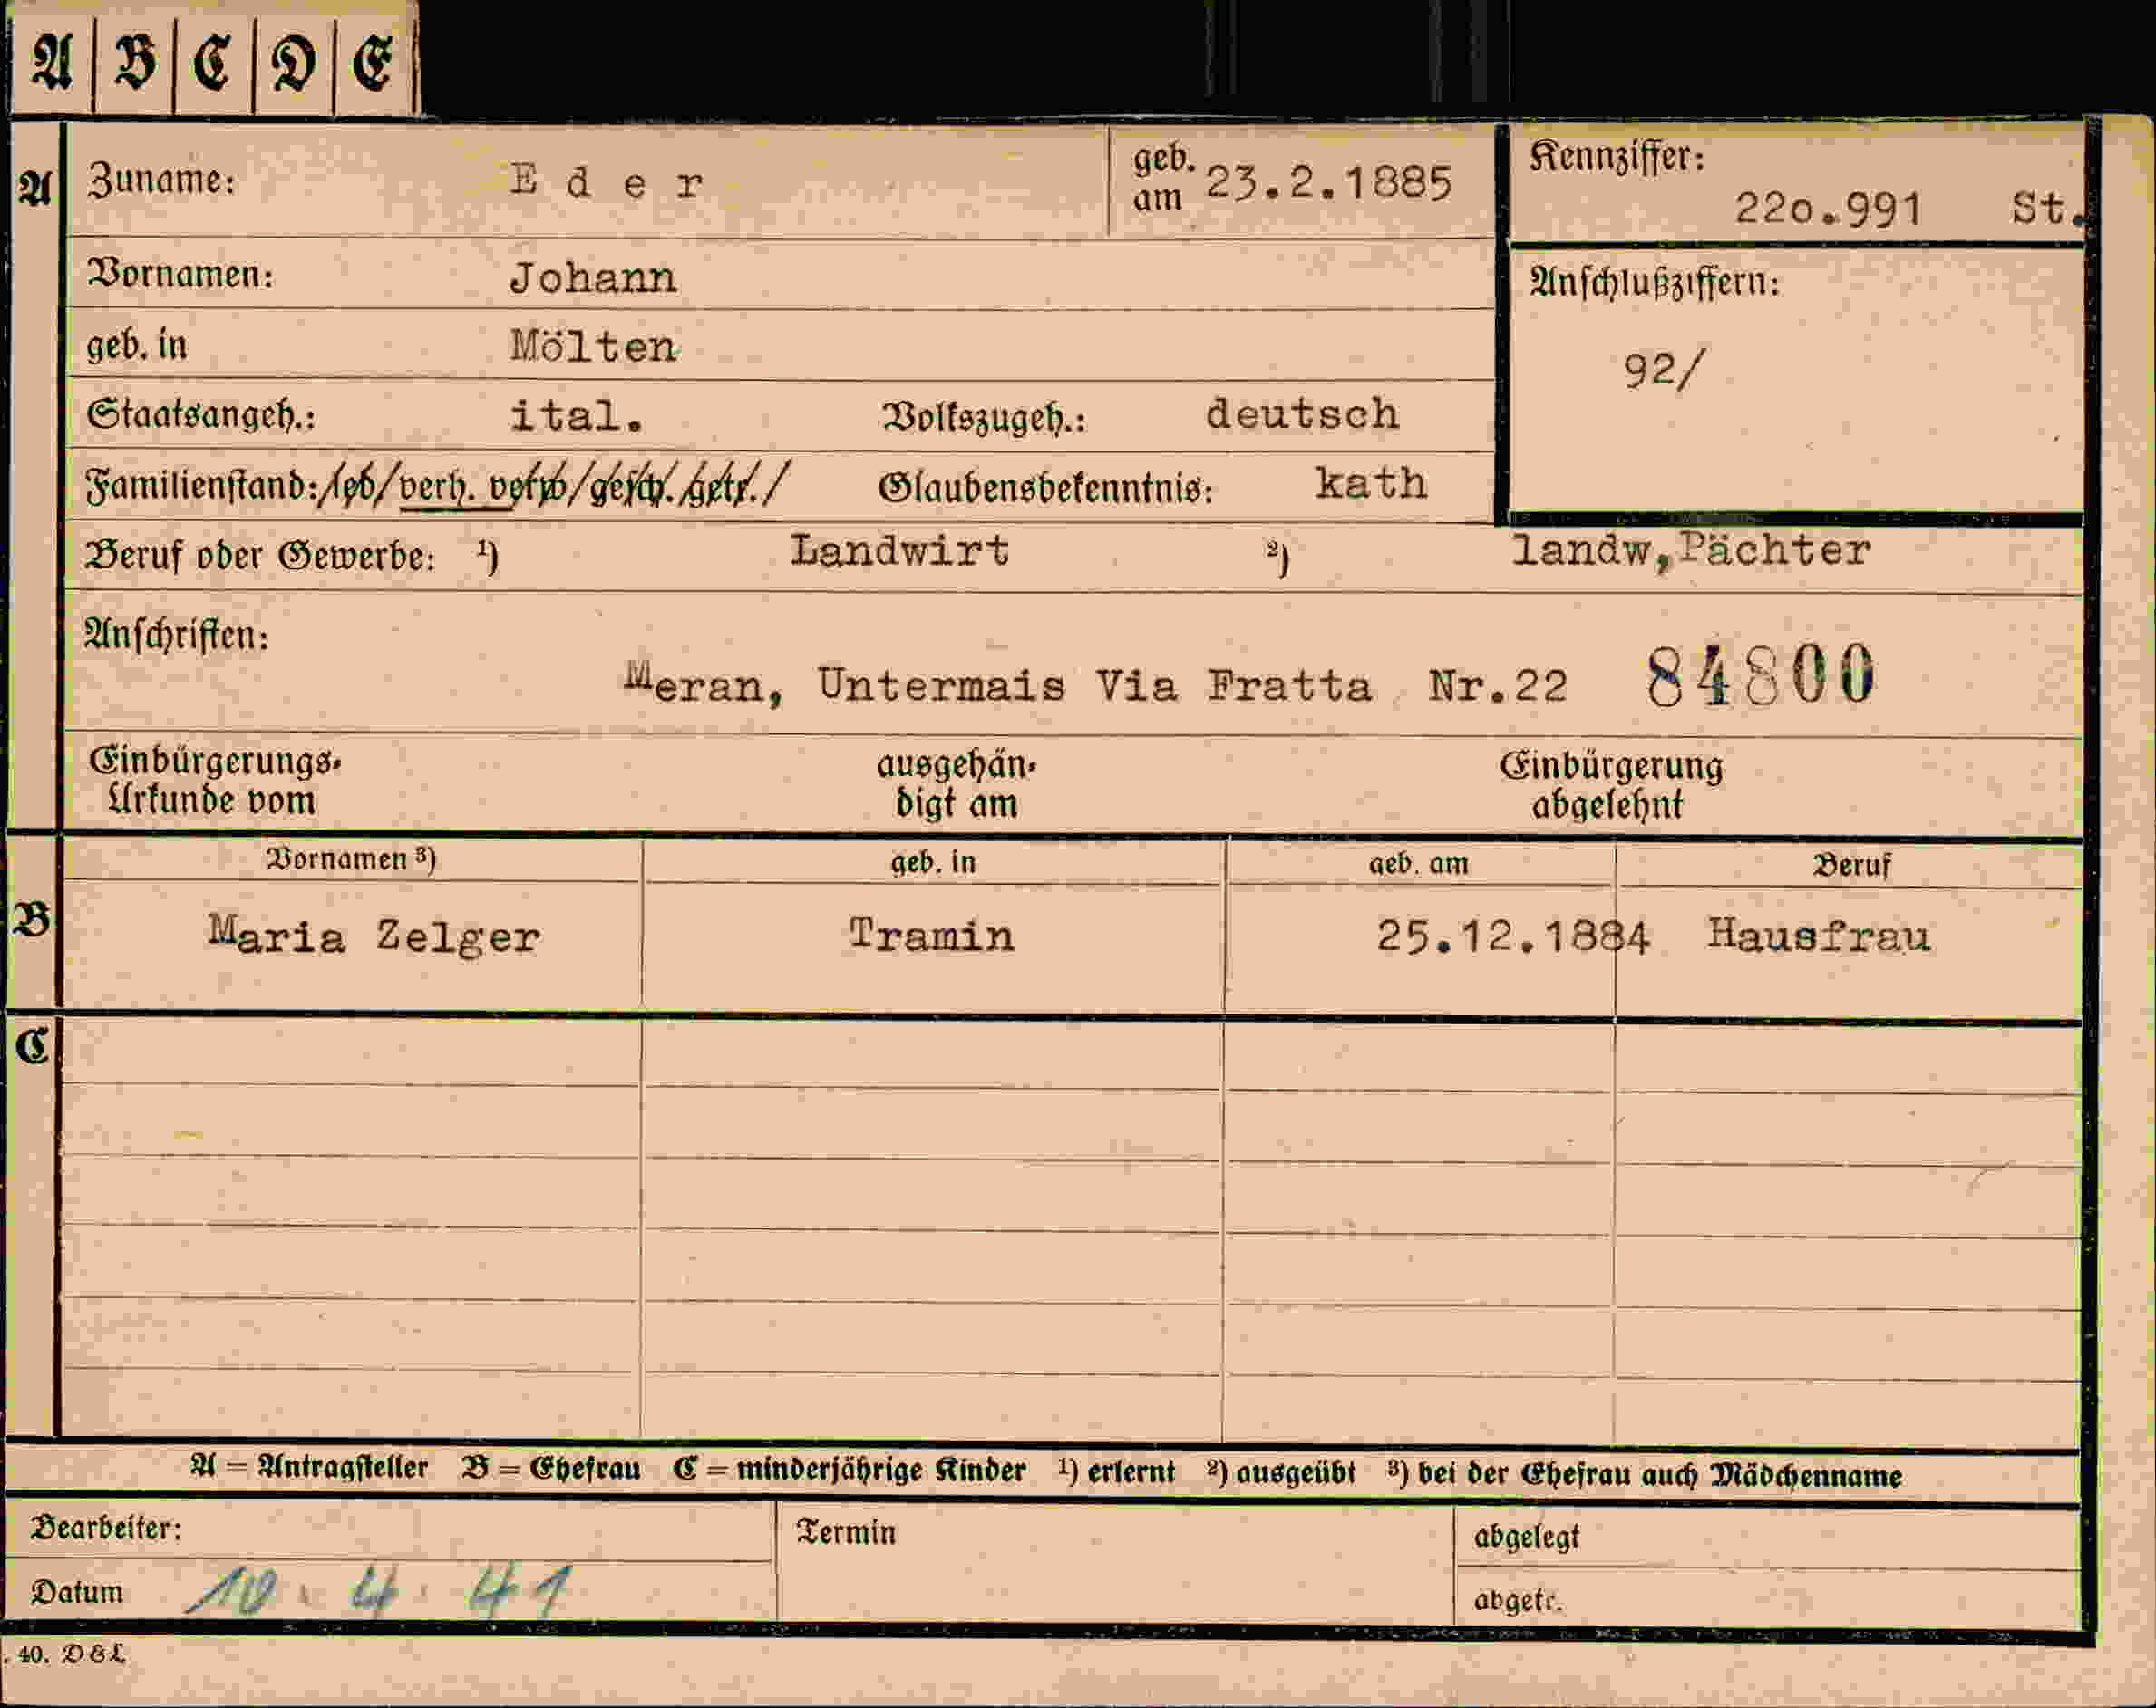 A B C D E
A Zuname: Eder geb. am 23.2.1885 Kennziffer: 22o.991 St.
Vornamen: Johann Anschlußziffern:
geb. in Mölten 92/
Staatsangeh.: ital. Volkszugeh.: deutsch
Familienstand: /led/verh. verw/gesch./getr./ Glaubensbekenntnis: kath
Beruf oder Gewerbe: ¹) Landwirt ²) landw,Pächter
Anschriften:
Meran, Untermais Via Fratta Nr.22 84800
Einbürgerungs- ausgehän- Einbürgerung
Urkunde vom digt am abgelehnt
Vornamen ³) geb. in geb. am Beruf
B Maria Zelger Tramin 25.12.1884 Hausfrau
C
A = Antragsteller B = Ehefrau C = minderjährige Kinder ¹) erlernt ²) ausgeübt ³) bei der Ehefrau auch Mädchenname
Bearbeiter: Termin abgelegt
Datum 10. 4. 41 abgetr.
. 40. D & L